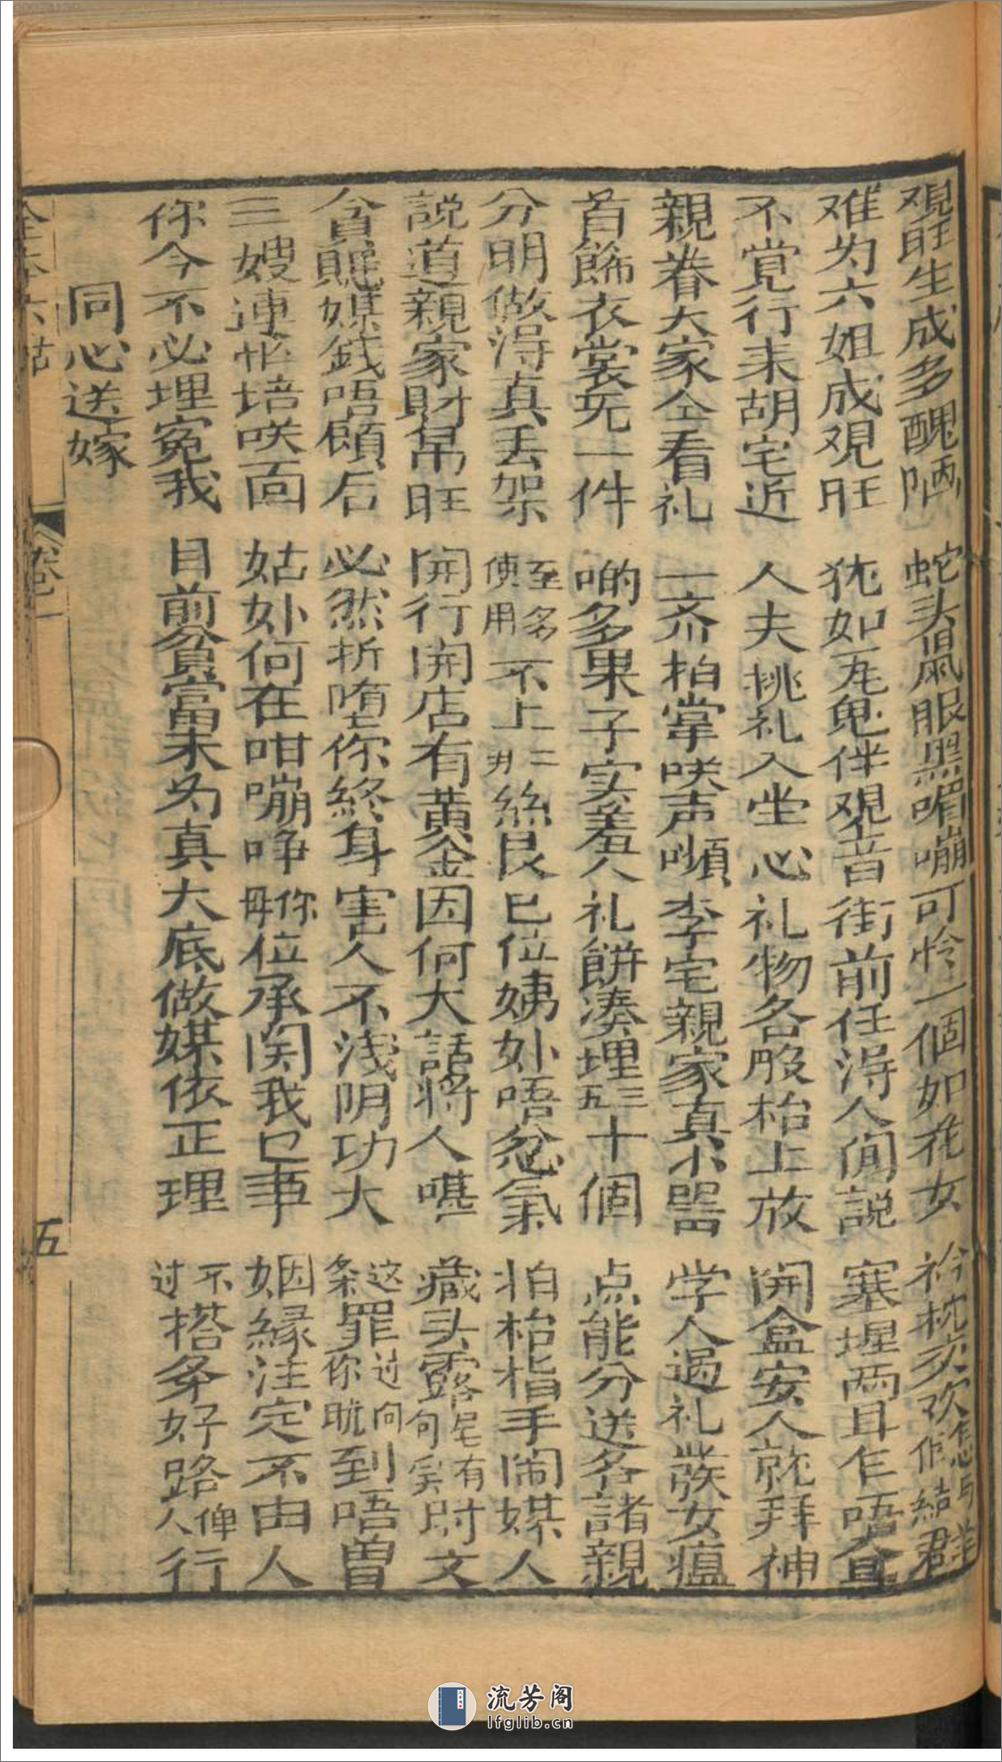 观旺生成多醜陋 蛇头鼠眼黑嘴嘣 可怜一個如花女 衿枕交欢怎与佢結群
难为六姐成观旺 犹如冤鬼伴观音 街前任淂人闲説 塞埋两耳乍唔闻
不覚行来胡宅近 人夫挑礼入堂心 礼物各般枱上放 開盒安人就拜神
親眷大家仝看礼 一齐拍掌咲声嚬 李宅親家真小器 学人过礼發女瘟
首餙衣裳无一件 啲多果子实羞人 礼餅凑埋三五十個 点能分送各諸親
分明做淂真丢架 至多使用不上二廾絲艮 巳位姨㚈唔忿氣 拍枱指手闹媒人
説道親家財帛旺 開行開店有黄金 因何大話将人噤 藏头露尾有句奚尉文
貪贓媒銭唔顧后 必然折堕你終身 害人不浅阴功大 这条罪过你眈向到唔曽
三嫂連忙培咲面 姑㚈何在咁嘣啍 毋你位承関我乜事 姻縁注定不由人
你今不必埋冤我 目前貧富未为真 大底做媒依正理 不过搭条好路俾人行
同心送嫁
卷一
五
流芳阁
lfglib.cn